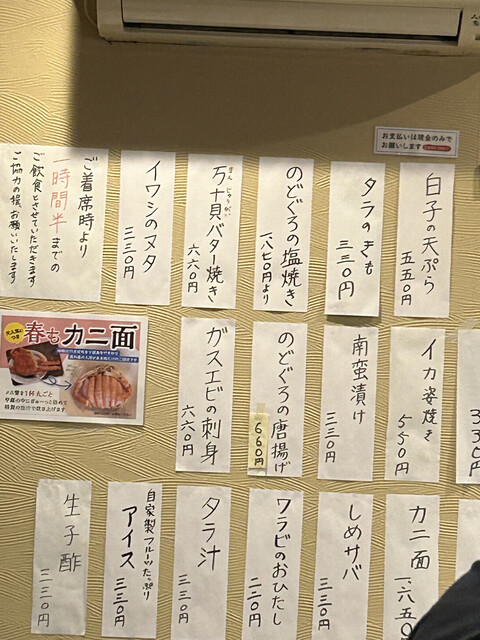 お支払いは現金のみで
お願いします
白子の天ぷら
五五〇円
タラのきも
三三〇円
のどぐろの塩焼き
一、八七〇円より
まんじゅうがい
万十貝バター焼き
六六〇円
イワシのヌタ
三三〇円
ご着席時より
一時間半までの
ご飲食とさせていただきます
ご協力の程、お願いいたします
イカ姿焼き
550円
南蛮漬け
三三〇円
のどぐろの唐揚げ
660円
ガスエビの刺身
六六〇円
大人気につき
春もカニ面
カニ面
一、六五〇
しめサバ
三三〇円
ワラビのおひたし
二二〇円
タラ汁
三三〇円
自家製フルーツたっぷり
アイス
三三〇円
生子酢
三三〇円